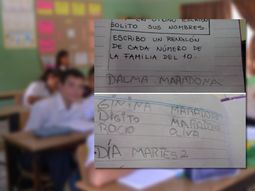 BOLITO SUS NOMBRES.
ESCRIBO UN RENGLÓN
DE CADA NÚMERO DE
LA FAMILIA DEL 10.
DALMA MARADONA
GININA MARADONA
DIGITO MARADONA
ROCIO OLIVA
DÍA MARTES 2